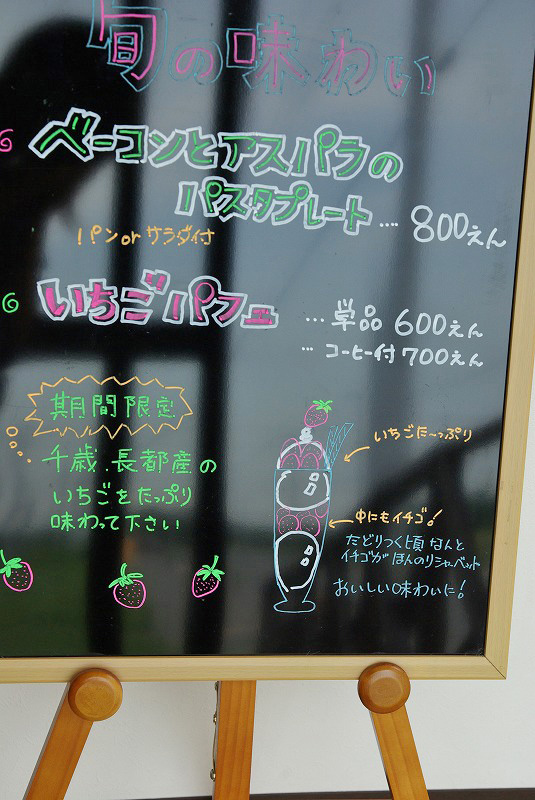 旬の味わい
ベーコンとアスパラの
パスタプレート…. 800えん
パンorサラダ付
いちごパフェ … 単品 600えん
… コーヒー付 700えん
期間限定
千歳.長都産の
いちごをたっぷり
味わって下さい
いちごた〜っぷり
中にもイチゴ!
たどりつく頃なんと
イチゴがほんのりシャーベット
おいしい味わいに!